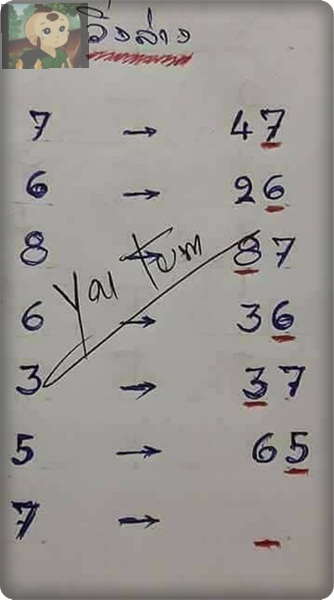 วิ่งล่าง
7 → 47
6 → 26
8 → 87
Yai Tum
6 → 36
3 → 37
5 → 65
7 →